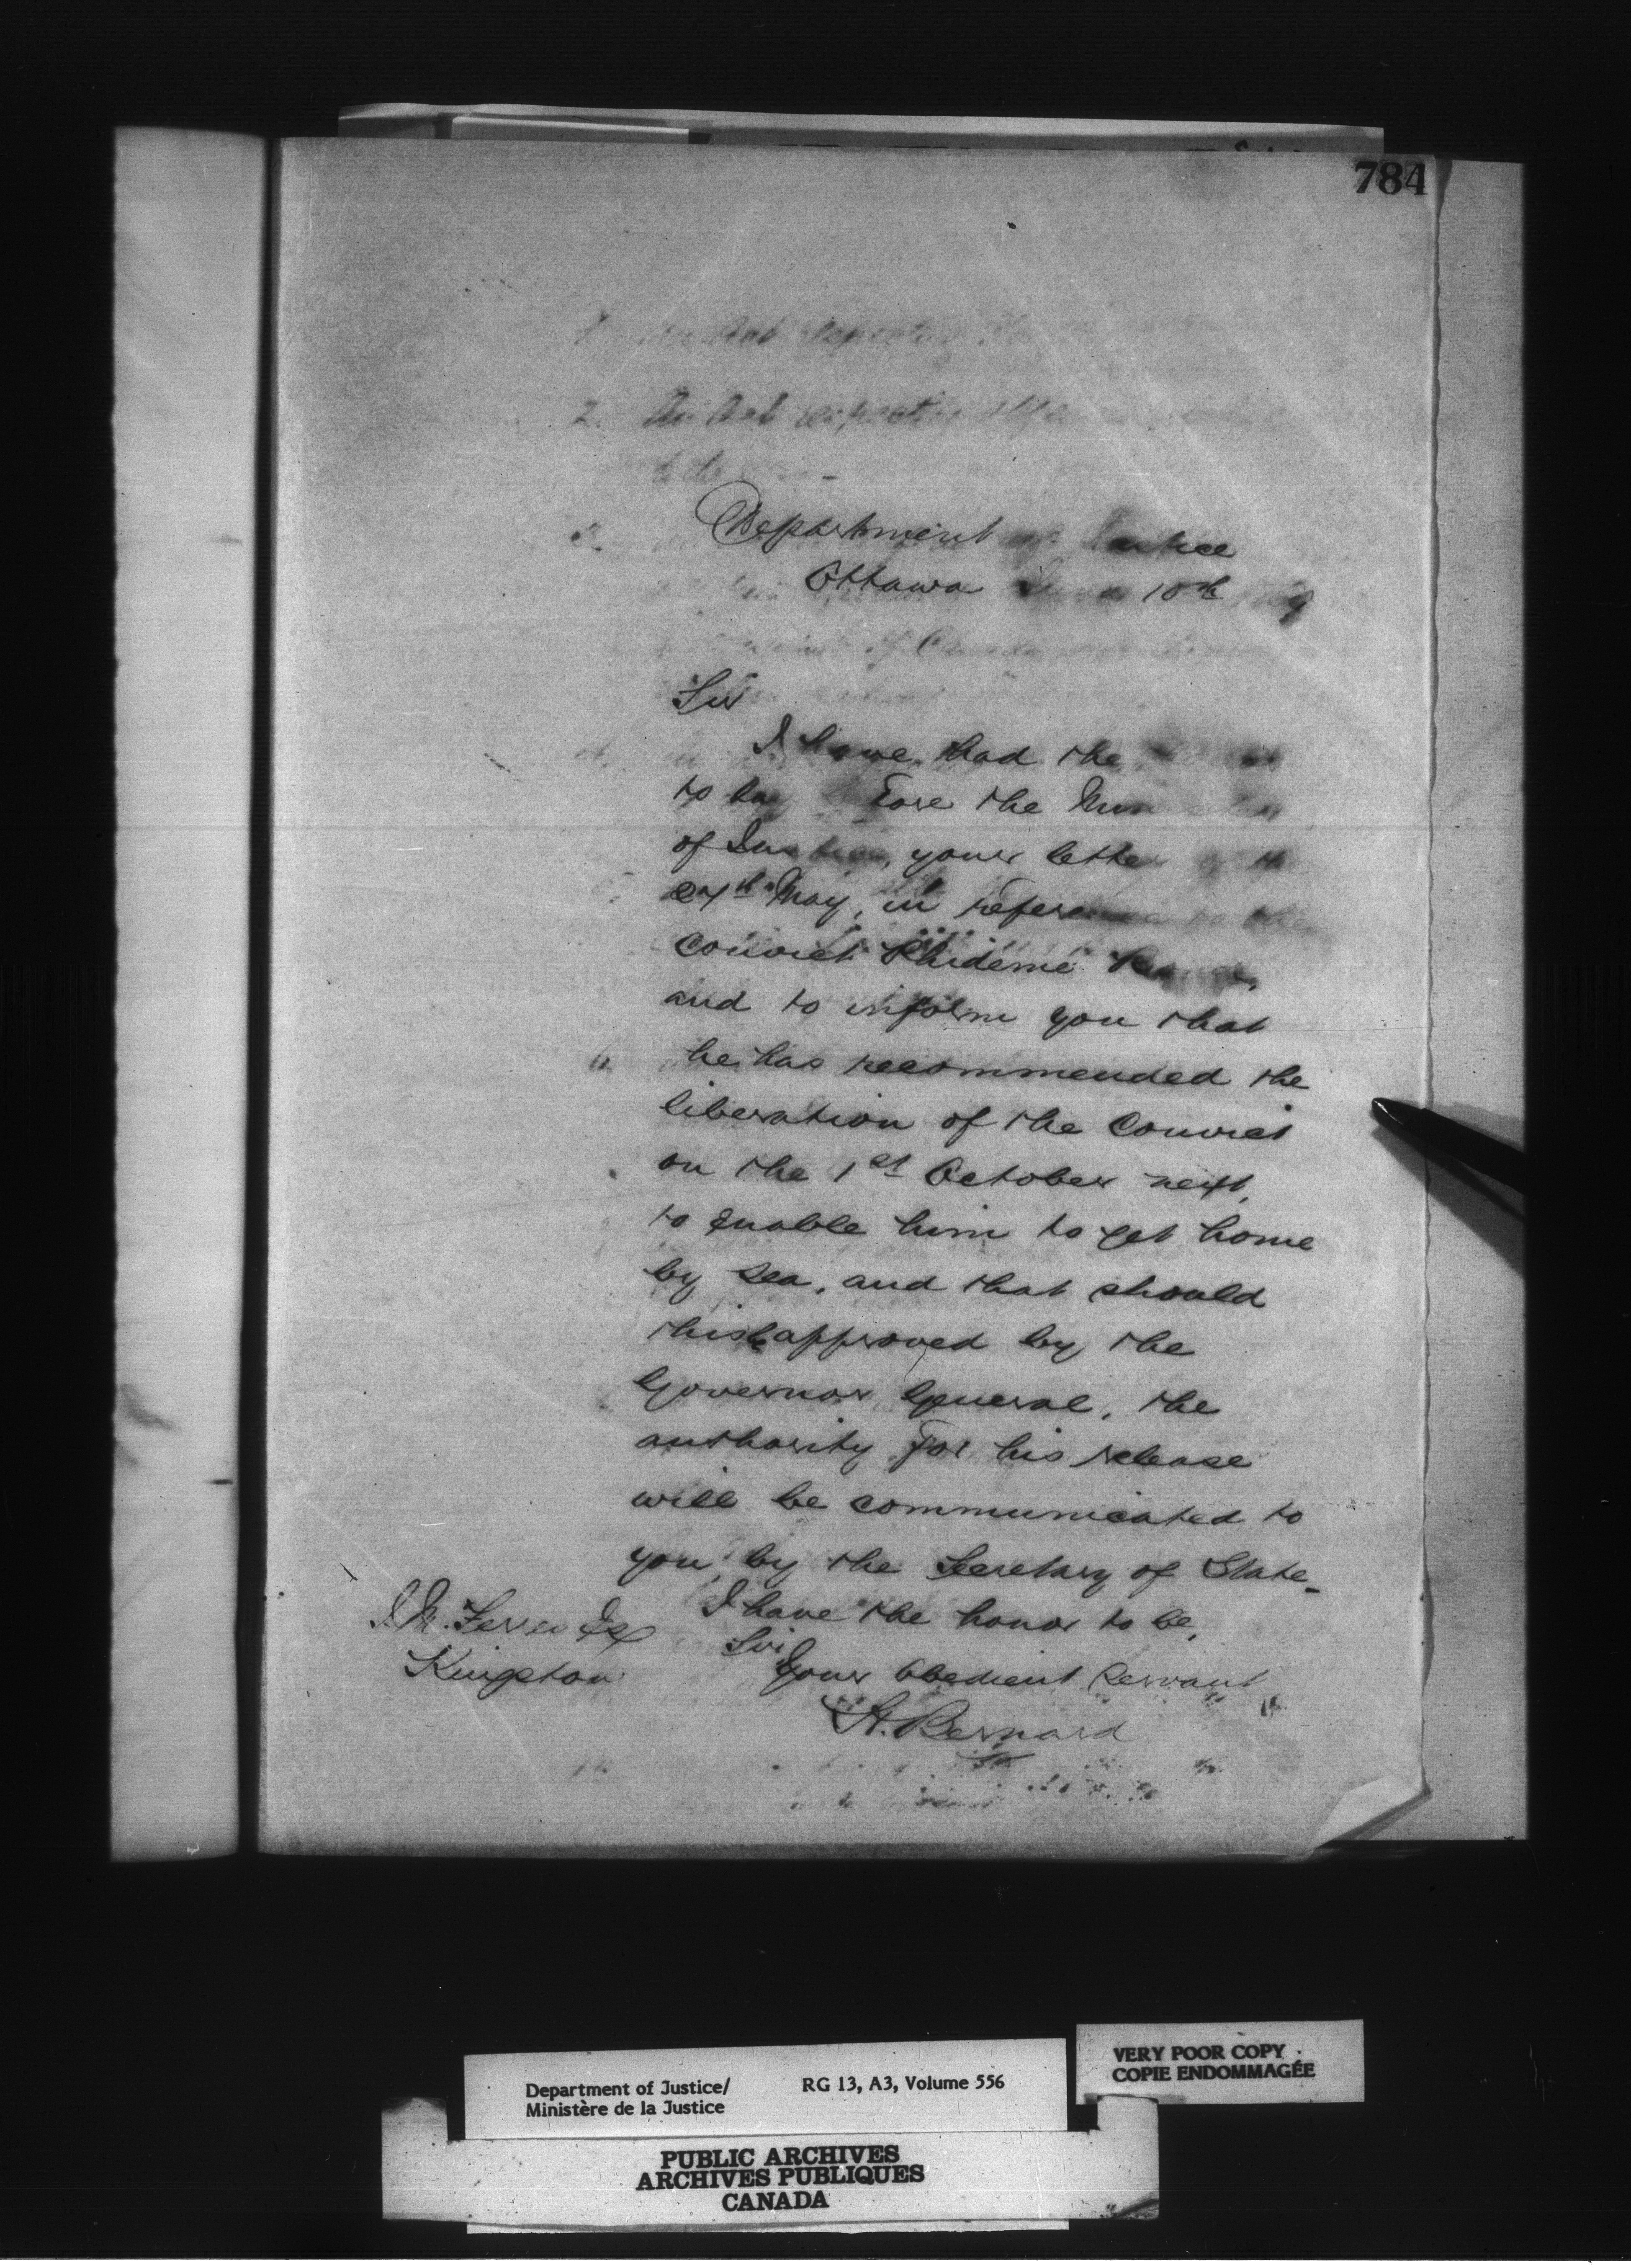 784
2. An Act respecting
Department Justice
Ottawa June 10th
Sir
I have had the
to lay before the Minister
of Justice, your letter of the
27th May, in reference to the
Convict Phidémé
and to inform you that
he has recommended the
liberation of the Convict
on the 1st October next,
to enable him to get home
by sea, and that should
this be approved by the
Governor General, the
authority for his release
will be communicated to
you by the Secretary of State_
I have the honor to be,
Sir
Your Obedient Servant
H. Bernard
J. M. Ferres Esq
Kingston
VERY POOR COPY
COPIE ENDOMMAGÉE
Department of Justice/
Ministère de la Justice
RG 13, A3, Volume 556
PUBLIC ARCHIVES
ARCHIVES PUBLIQUES
CANADA